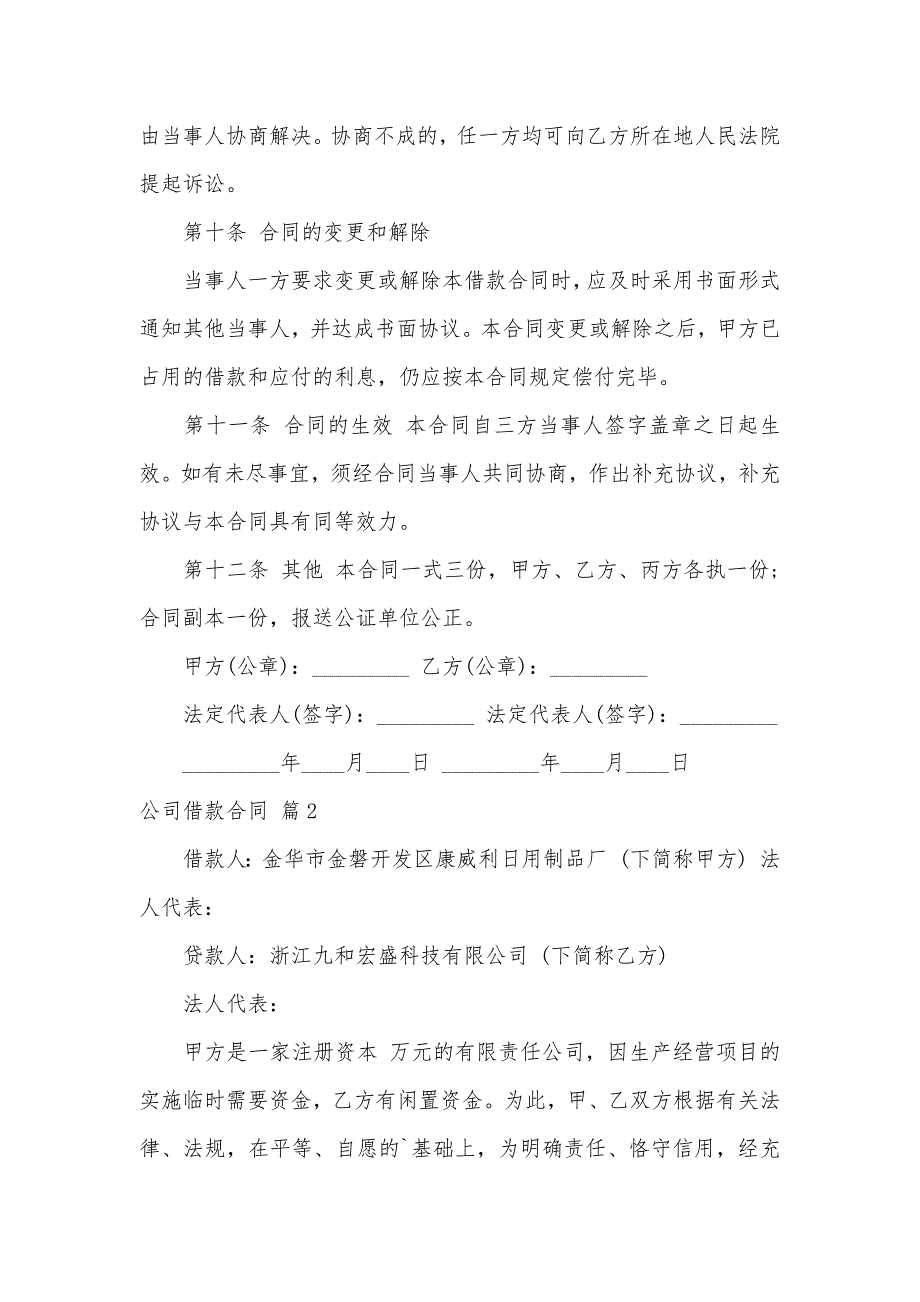 由当事人协商解决。协商不成的，任一方均可向乙方所在地人民法院
提起诉讼。
第十条 合同的变更和解除
当事人一方要求变更或解除本借款合同时，应及时采用书面形式
通知其他当事人，并达成书面协议。本合同变更或解除之后，甲方已
占用的借款和应付的利息，仍应按本合同规定偿付完毕。
第十一条 合同的生效 本合同自三方当事人签字盖章之日起生
效。如有未尽事宜，须经合同当事人共同协商，作出补充协议，补充
协议与本合同具有同等效力。
第十二条 其他 本合同一式三份，甲方、乙方、丙方各执一份;
合同副本一份，报送公证单位公正。
甲方(公章)：_________ 乙方(公章)：_________
法定代表人(签字)：_________ 法定代表人(签字)：_________
_________年____月____日 _________年____月____日
公司借款合同 篇2
借款人：金华市金磐开发区康威利日用制品厂 (下简称甲方) 法
人代表：
贷款人：浙江九和宏盛科技有限公司 (下简称乙方)
法人代表：
甲方是一家注册资本 万元的有限责任公司，因生产经营项目的
实施临时需要资金，乙方有闲置资金。为此，甲、乙双方根据有关法
律、法规，在平等、自愿的`基础上，为明确责任、恪守信用，经充